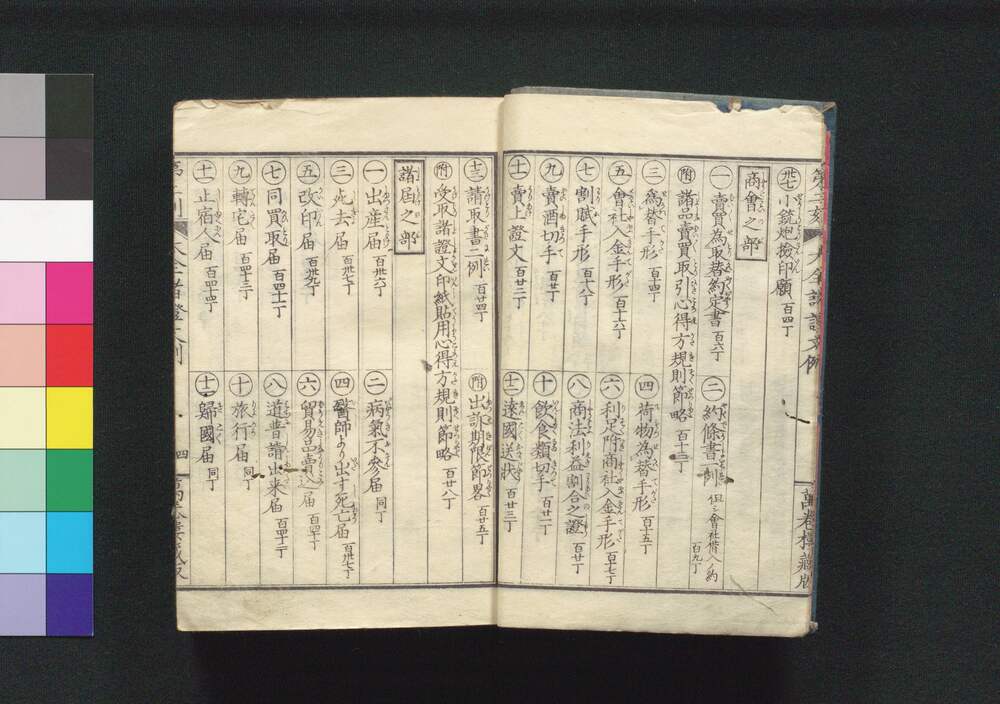 卅七 小銃炮撿印願 百四丁
商會之部
一 賣買為取替約定書 百六丁
二 約條書一例 但シ會社借入ノ約 百九丁
附 諸品賣買取引心得方規則節略 百十二丁
三 為替手形 百十四丁
四 荷物為替手形 百十五丁
五 會社入金手形 百十六丁
六 利足附商社入金手形 百十七丁
七 割賦手形 百十八丁
八 商法利益割合之證 百廿丁
九 賣酒切手 百廿丁
十 飲食類切手 百廿一丁
十一 賣上證文 百廿二丁
十二 遠國送状 百廿三丁
十三 請取書二例 百廿四丁
附 出訴期限節畧 百廿五丁
附 受取諸證文印紙貼用心得方規則節略 百廿八丁
諸届之部
一 出産届 百卅六丁
二 病氣不参届 同丁
三 死去届 百卅七丁
四 醫師より出す死亡届 百卅七丁
五 改印届 百卅九丁
六 貿易品賣込届 百四十丁
七 同買取届 百四十一丁
八 道普請出来届 百四十二丁
九 轉宅届 百四十三丁
十 旅行届 同丁
十一 止宿人届 百四十四丁
十二 歸國届 同丁
四
萬卷樓藏版